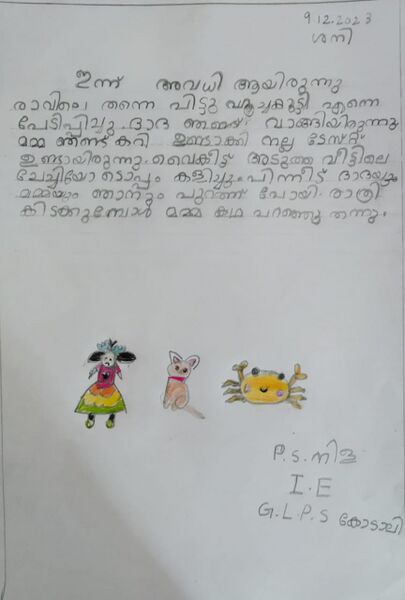 9.12.2023
ശനി
ഇന്ന് അവധി ആയിരുന്നു
രാവിലെ തന്നെ പിട്ടു പൂച്ചകുട്ടി എന്നെ
പേടിപ്പിച്ചു ദാദ ഞണ്ട് വാങ്ങിയിരുന്നു
മമ്മ ഞണ്ട് കറി ഉണ്ടാക്കി നല്ല ടേസ്റ്റ്
ഉണ്ടായിരുന്നു. വൈകീട്ട് അടുത്ത വീട്ടിലെ
ചേച്ചിയോടൊപ്പം കളിച്ചു. പിന്നീട് ദാദയും
മമ്മയും ഞാനും പുറത്ത് പോയി. രാത്രി
കിടക്കുമ്പോൾ മമ്മ കഥ പറഞ്ഞു തന്നു.
P.S.നിള
I.E
G.L.P.S കോടാലി